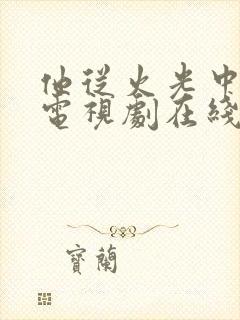 他從火光中
電視劇在綫
寶蘭